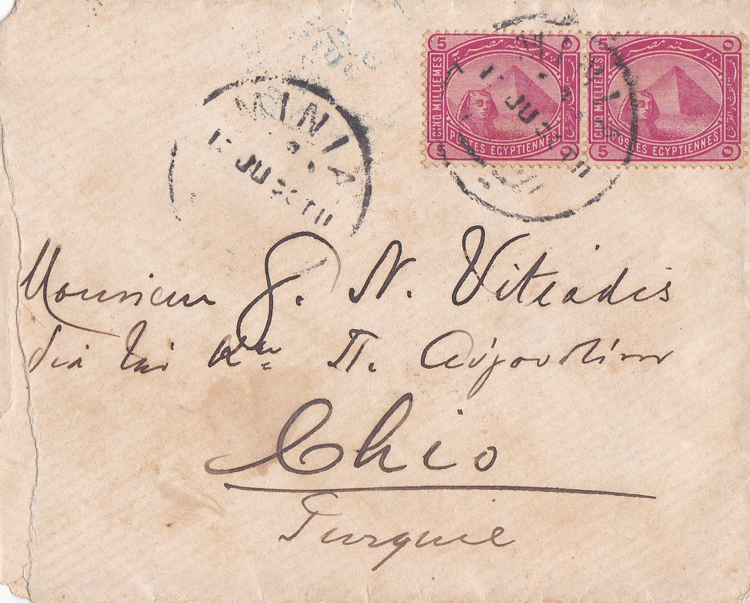 MINIA
5 5
CINQ MILLIEMES
POSTES EGYPTIENNES
5
5
CINQ MILLIEMES
POSTES EGYPTIENNES
5
Monsieur G. N. Vitiadis
διὰ τοῦ Κου Π. Αὐγουστίνου
Chio
Turquie